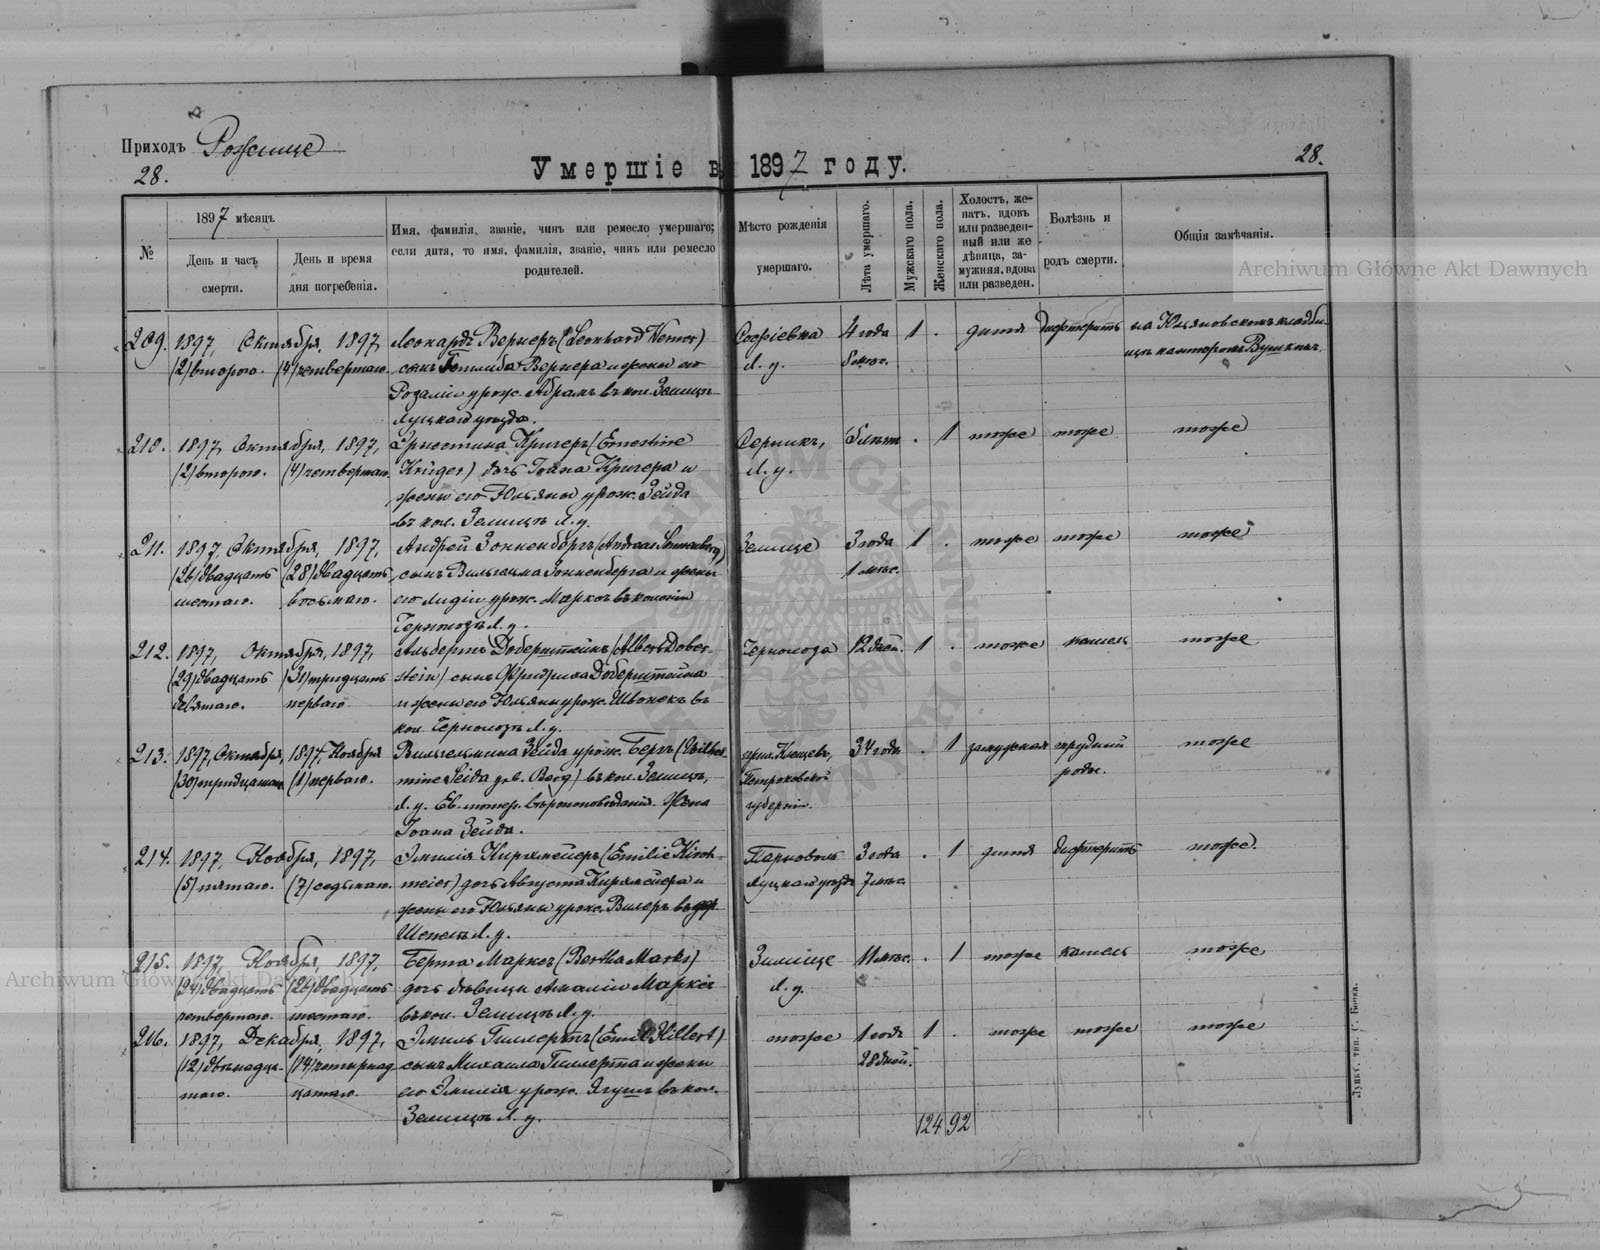 Приходъ Рожище
28.
Умершіе въ 1897 году.
28.
№
1897 мѣсяцъ
День и часъ
смерти.
День и время
дня погребенія.
Имя, фамилія, званіе, чинъ или ремесло умершаго;
если дитя, то имя, фамилія, званіе, чинъ или ремесло
родителей.
Мѣсто рожденія
умершаго.
Лѣта умершаго.
Мужскаго пола.
Женскаго пола.
Холостъ, же-
натъ, вдовъ
или разведен-
ный или же
дѣвица, за-
мужняя, вдова
или разведен.
Болѣзнь и
родъ смерти.
Общія замѣчанія.
209. 1897, Октября, 1897, Леонардъ Вернеръ (Leonhard Werner) Софіевка 4 года 1 . дитя дифтеритъ на
(2) второго. (4) четвертаго. сынъ Готлиба Вернера и жены его Л. у. 8 мѣс.
Розаліи урож. Абрамъ въ кол. Земицѣ
Луцкаго уѣзда.
210. 1897, Октября, 1897, Эрнестина Кригеръ (Ernestine Серникъ, 6 лѣтъ . 1 тоже тоже тоже
(2) второго. (4) четвертаго. Krüger) дочь Іоана Кригера и Л. у.
жены его Юльяны урож. Зейда
въ кол. Земицѣ Л. у.
211. 1897, Октября, 1897, Андрей Зонненбергъ (Andreas Sonnenberg) Земице 3 года 1 . тоже тоже тоже
(26) двадцать (28) двадцать сынъ Вильгельма Зонненберга и жены 1 мѣс.
шестаго. восьмаго. его Лидіи урож. Марксъ въ колоніи
Чернолозѣ Л. у.
212. 1897, Октября, 1897, Альбертъ Доберштейнъ (Albert Dober- Чернолоза 12 дней. 1 . тоже кашель тоже
(29) двадцать (31) тридцать stein) сынъ Фридриха Доберштейна
девятаго. перваго и жены его Юльяны урож. Швонекъ въ
кол. Чернолозѣ Л. у.
213. 1897, Октября, 1897, Ноября Вильгельмина Зейда урож. Бергъ (Wilhel- 34 года . 1 замужняя трудный тоже
(30) тридцатаго (1) перваго. mine Seida geb. Berg) въ кол. Земицѣ, Петроковской роды.
Л. у. Ев. лютер. вѣроисповѣданія. Жена губерніи.
Іоана Зейда.
214. 1897, Ноября, 1897, Эмилія Кирхмейеръ (Emilie Kirch- Тарнополь 3 года . 1 дитя дифтеритъ тоже.
(5) пятаго. (7) седьмаго. meier) дочь Августа Кирхмейера и Луцкаго уѣзда 7 мѣс.
жены его Юльяны урож. Вилеръ въ дер.
Шепель Л. у.
215. 1897, Ноября, 1897, Берта Марксъ (Bertha Marks) Зимище 11 мѣс. . 1 тоже кашель тоже
(24) двадцать (26) двадцать дочь дѣвицы Амаліи Марксъ Л. у.
четвертаго. шестаго. въ кол. Земицѣ Л. у.
216. 1897, Декабря, 1897, Эмиль Гиллертъ (Emil Hillert) тоже 1 годъ 1 . тоже тоже тоже
(12) двѣнадца- (14) четырнад- сынъ Михаила Гиллерта и жены 28 дней.
таго. цатаго. его Эмиліи урож. Ягушъ въ кол.
Земицѣ Л. у.
124 92
Луцкъ, тип. С. Бонка.
Archiwum Główne Akt Dawnych
Archiwum Główne Akt Dawnych
ARCHIWUM GŁÓWNE AKT DAWNYCH